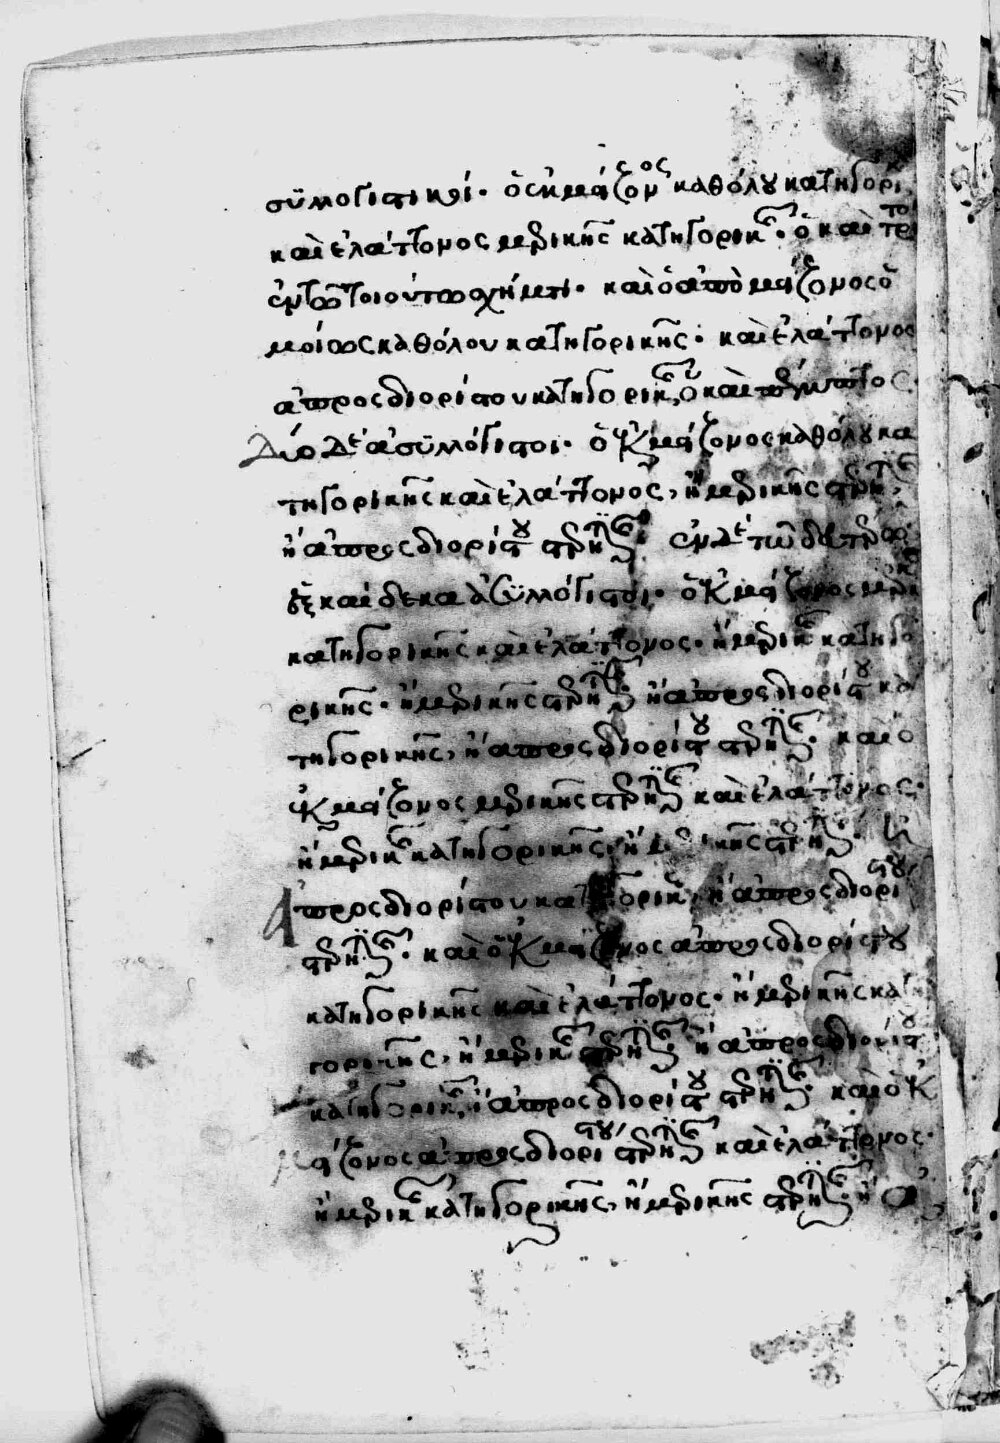 συλλογιστικοί· ὁ ἐκ μείζονος καθόλου κατηγορικ
καὶ ἐλάττονος μερικῆς κατηγορικῆς· ὃ καὶ τρίτο
ἐν τῶ τοιούτω σχήματι· καὶ ὁ ἀπὸ μείζονος ὁ
μοίως καθόλου κατηγορικῆς· καὶ ἐλάττονος
ἀπροσδιορίστου κατηγορικῆς,
Δύο δὲ ἀσυλλόγιστοι· ὁ ἐκ μείζονος καθόλου κα
τηγορικῆς καὶ ἐλάττονος, ἢ μερικῆς στερητικῆς,
ἢ ἀπροσδιορίστου στερητικῆς· ἐν δὲ τῶ
ἑξκαίδεκα ἀσυλλόγιστοι· ὁ ἐκ μείζονος μερικ
κατηγορικῆς καὶ ἐλάττονος· ἢ μερικῆς κατηγο
ρικῆς· ἢ μερικῆς στερητικῆς· ἢ ἀπροσδιορίστου κα
τηγορικῆς, ἢ ἀπροσδιορίστου στερητικῆς· καὶ ὁ
ἐκ μείζονος μερικῆς στερητικῆς καὶ ἐλάττονος·
ἢ μερικῆς κατηγορικῆς, ἢ μερικῆς στερητικῆς· ἢ
ἀπροσδιορίστου κατηγορικῆς, ἢ ἀπροσδιορίστου
στερητικῆς· καὶ ὁ ἐκ μείζονος ἀπροσδιορίστου
κατηγορικῆς καὶ ἐλάττονος· ἢ μερικῆς κατη
γορικῆς, ἢ μερικῆς στερητικῆς· ἢ ἀπροσδιορίστου
κατηγορικῆς, ἢ ἀπροσδιορίστου στερητικῆς· καὶ ὁ ἐκ
μείζονος ἀπροσδιορίστου στερητικῆς καὶ ἐλάττονος·
ἢ μερικῆς κατηγορικῆς, ἢ μερικῆς στερητικῆς· ἢ ἀ